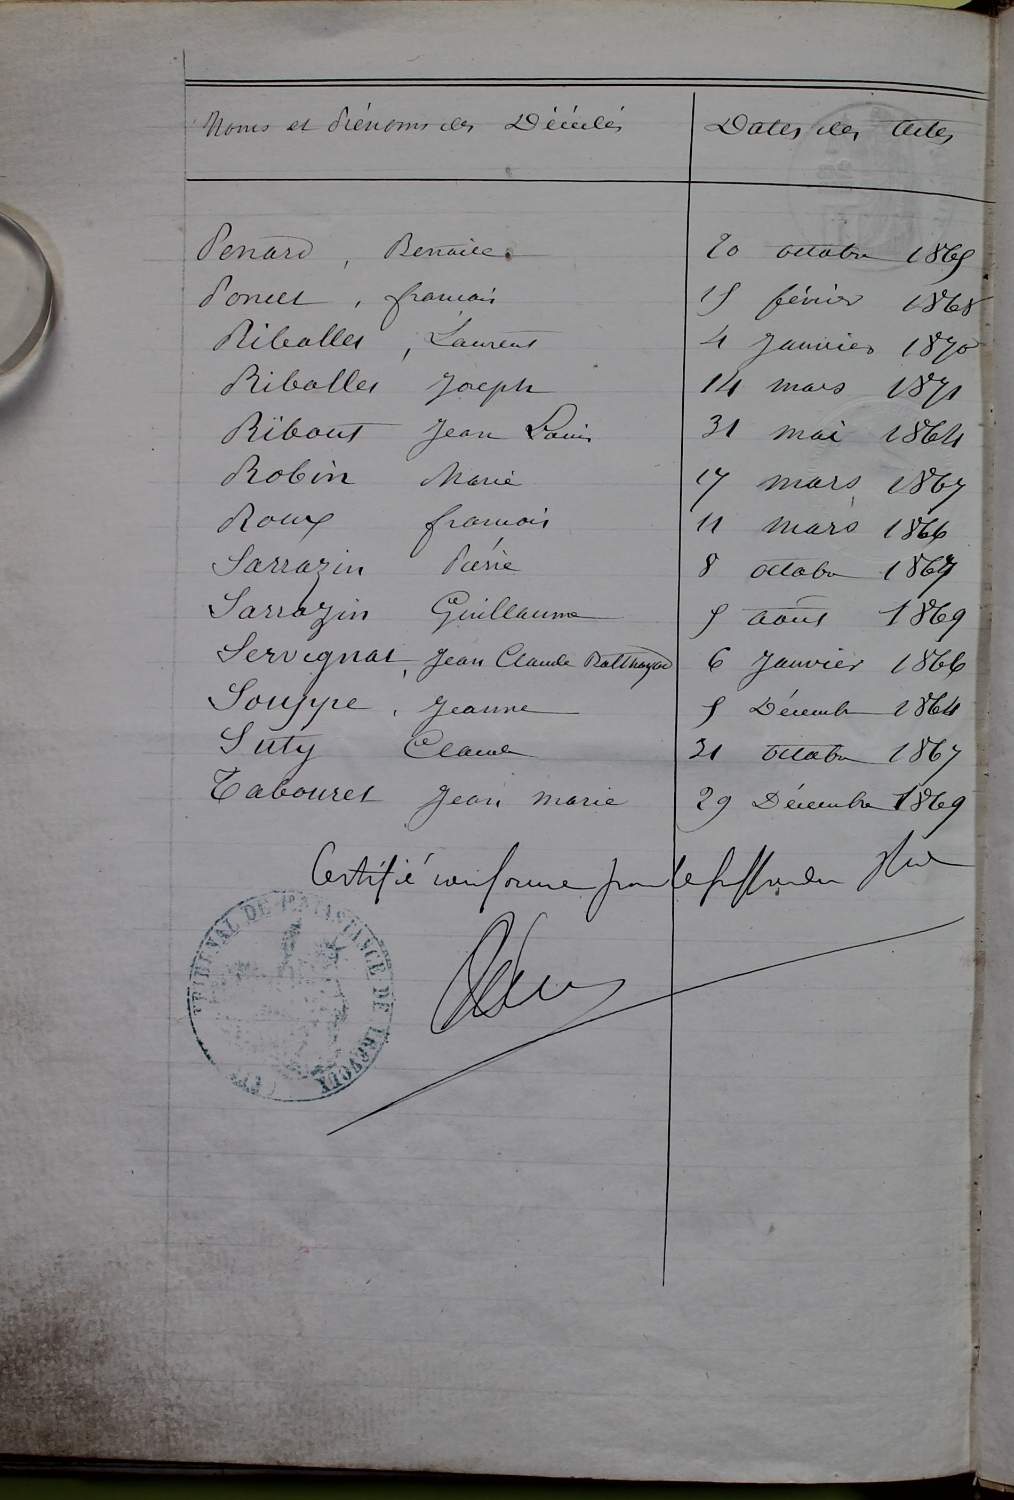 Noms et Prénoms des Décédés Dates des Actes
Penard, Benoite 20 octobre 1865
Poncet, françois 15 février 1868
Ribollet, Laurent 4 Janvier 1870
Ribollet Joseph 14 mars 1871
Ribout Jean Louis 31 mai 1864
Robin Marie 17 mars 1867
Roux françois 11 mars 1866
Sarrazin Pierre 8 octobre 1867
Sarrazin Guillaume 5 août 1869
Servignat, Jean Claude Balthazar 6 Janvier 1866
Souppe, Jeanne 5 Décembre 1864
Suty Claude 31 octobre 1867
Tabouret Jean marie 29 Décembre 1869
Certifié conforme par le greffier
TRIBUNAL DE 1RE INSTANCE DE TREVOUX